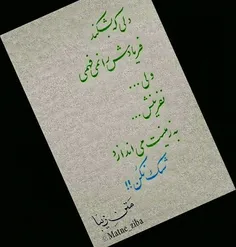 دلی که بشکند
فریادش را نمی فهمی
ولی ...
نفرینش ...
به زمینت می اندازد
شک نکن !!
متن زیبا
@Matne_ziba